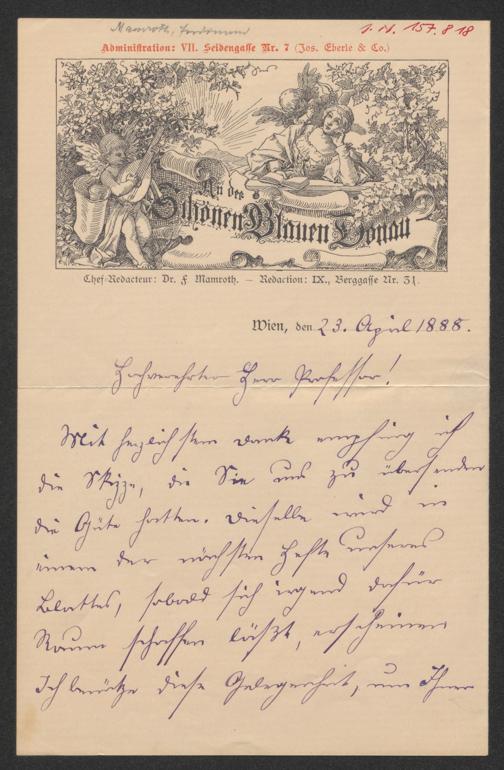 Mamroth, Ferdinand
I. N. 157.818
Administration: VII. Seidengasse Nr. 7 (Jos. Eberle & Co.)
An der
Schönen Blauen Donau
Chef-Redacteur: Dr. F. Mamroth. — Redaction: IX., Berggasse Nr. 31.
Wien, den 23. April 1888.
Hochverehrter Herr Professor!
Mit herzlichstem Dank empfing ich
die Skizze, die Sie uns zu übersenden
die Güte hatten. Dieselbe wird in
einem der nächsten Hefte unseres
Blattes, sobald sich irgend dafür
Raum schaffen läßt, erscheinen
Ich benütze diese Gelegenheit, um Ihnen